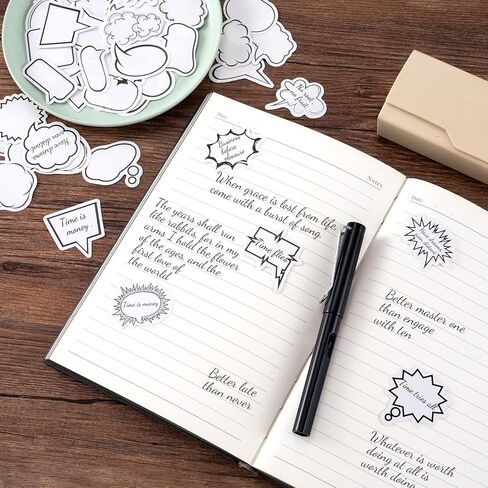 Time is
money.
Have dreams
even distant
Date
Business
before
pleasure
Notes
When grace is lost from life,
come with a burst of song.
The years shall run
like rabbits for in my
arms I hold the flower
of the ages, and the
first love of
the world
Time flies
Time is money
Better late
than never
Date
Better master one
than engage
with ten
Time tries all
Whatever is worth
doing at all is
worth doing